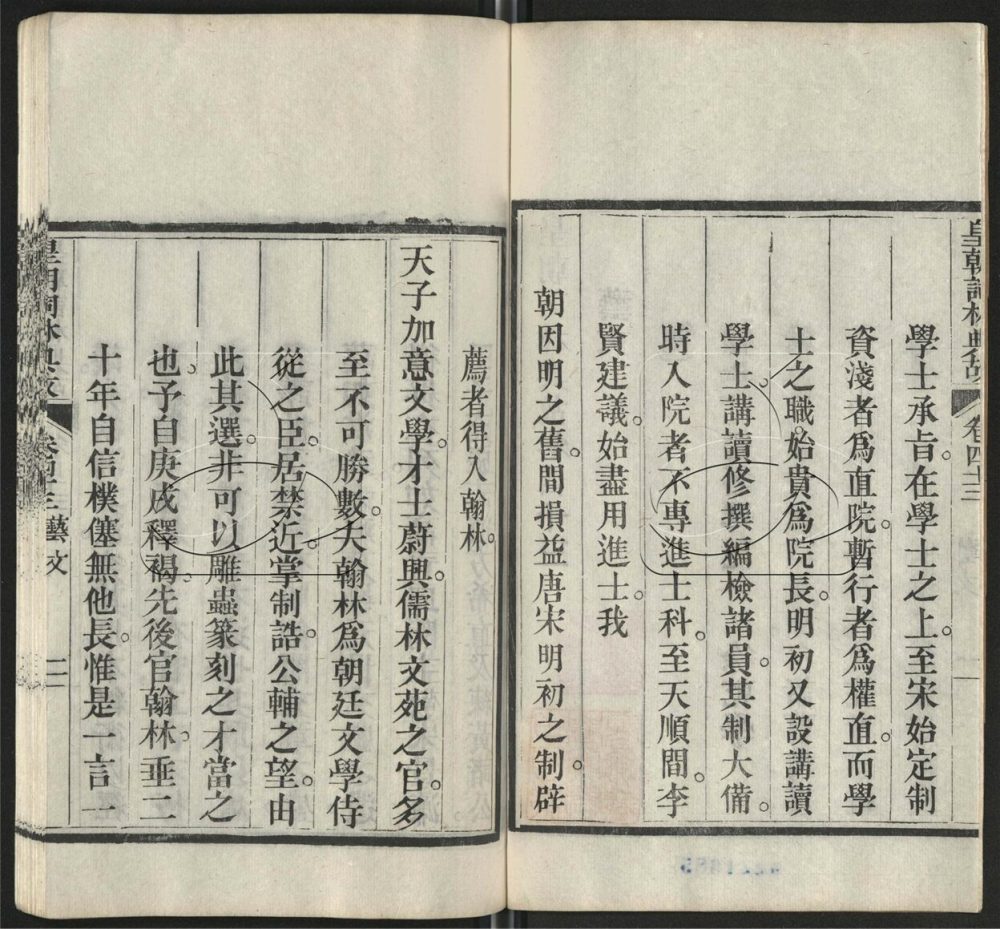 皇朝詞林典故 卷四十三
學士承旨在學士之上。至宋始定制
資淺者爲直院。暫行者爲權直。而學
士之職始貴。爲院長。明初又設講讀
學士。講讀修撰編檢諸員。其制大備。
時入院者不專進士科。至天順間。李
賢建議。始盡用進士。我
朝因明之舊。間損益唐宋明初之制。辟
薦者得入翰林。
天子加意文學。才士蔚興。儒林文苑之官。多
至不可勝數。夫翰林爲朝廷文學侍
從之臣。居禁近。掌制誥。公輔之望。由
此其選。非可以雕蟲篆刻之才當之
也。予自庚戌釋褐。先後官翰林。垂二
十年。自信樸僿無他長。惟是一言一
藝文 二